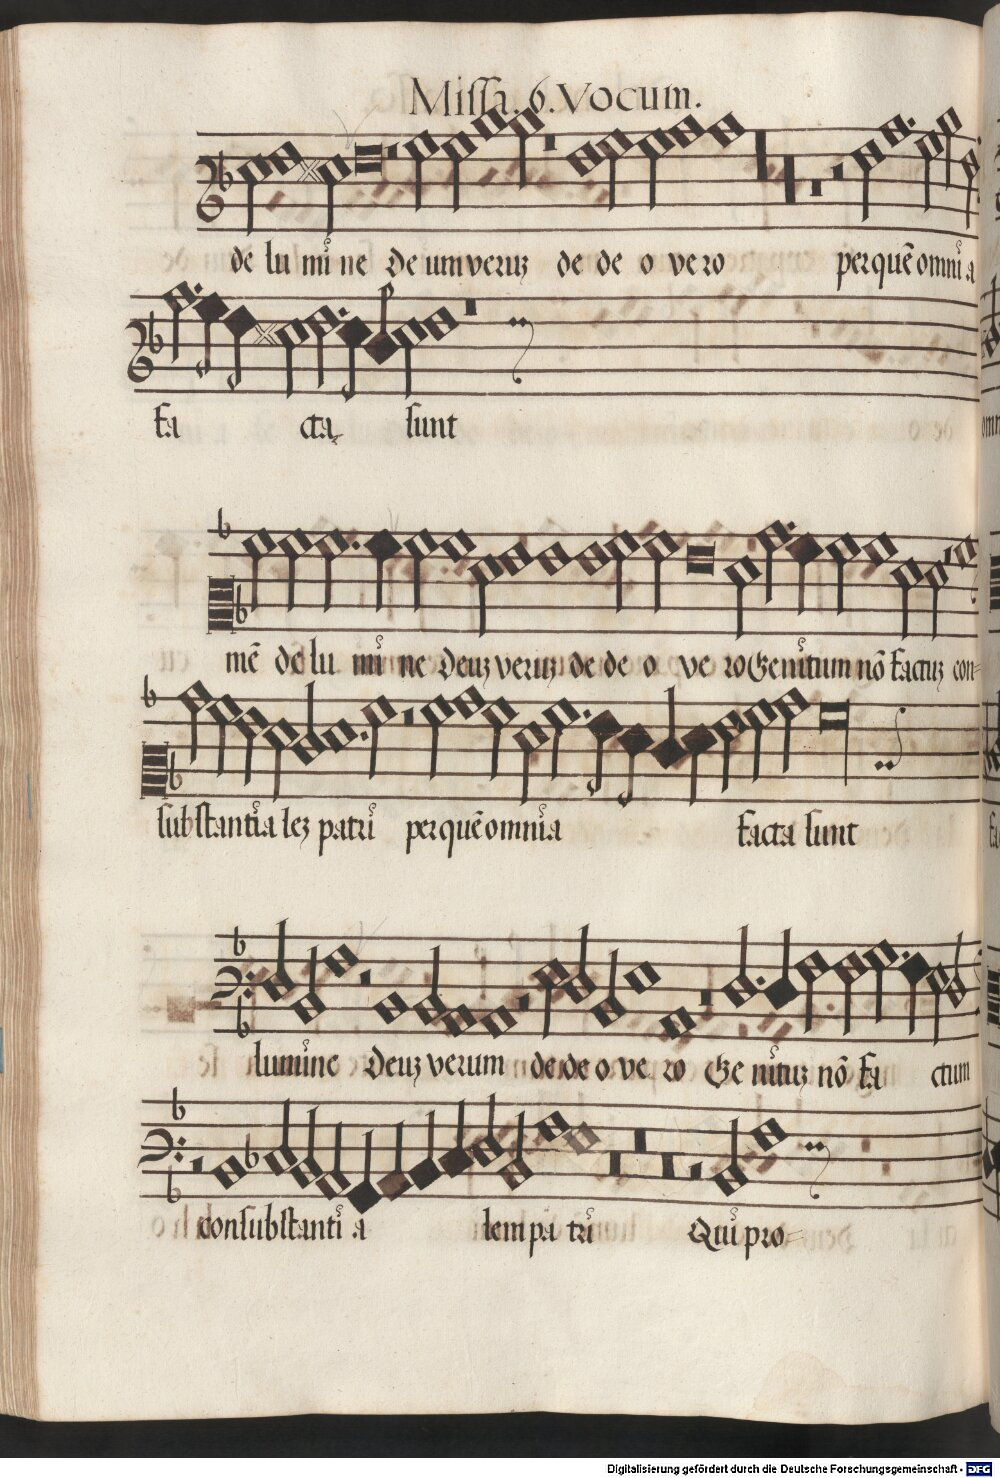 Missa. 6. Vocum.
de lu mi ne De um veruʒ de de o ve ro per quē omni a
fa cta sunt
mē de lu mi ne Deuʒ veruʒ de de o ve ro Genitum nō factuʒ con=
substantia leʒ patri per quē omnia facta sunt
lumine Deuʒ verum de de o ve ro Ge nituʒ nō fa ctum
consubstanti a lem pa tri Qui pro=
Digitalisierung gefördert durch die Deutsche Forschungsgemeinschaft - DFG